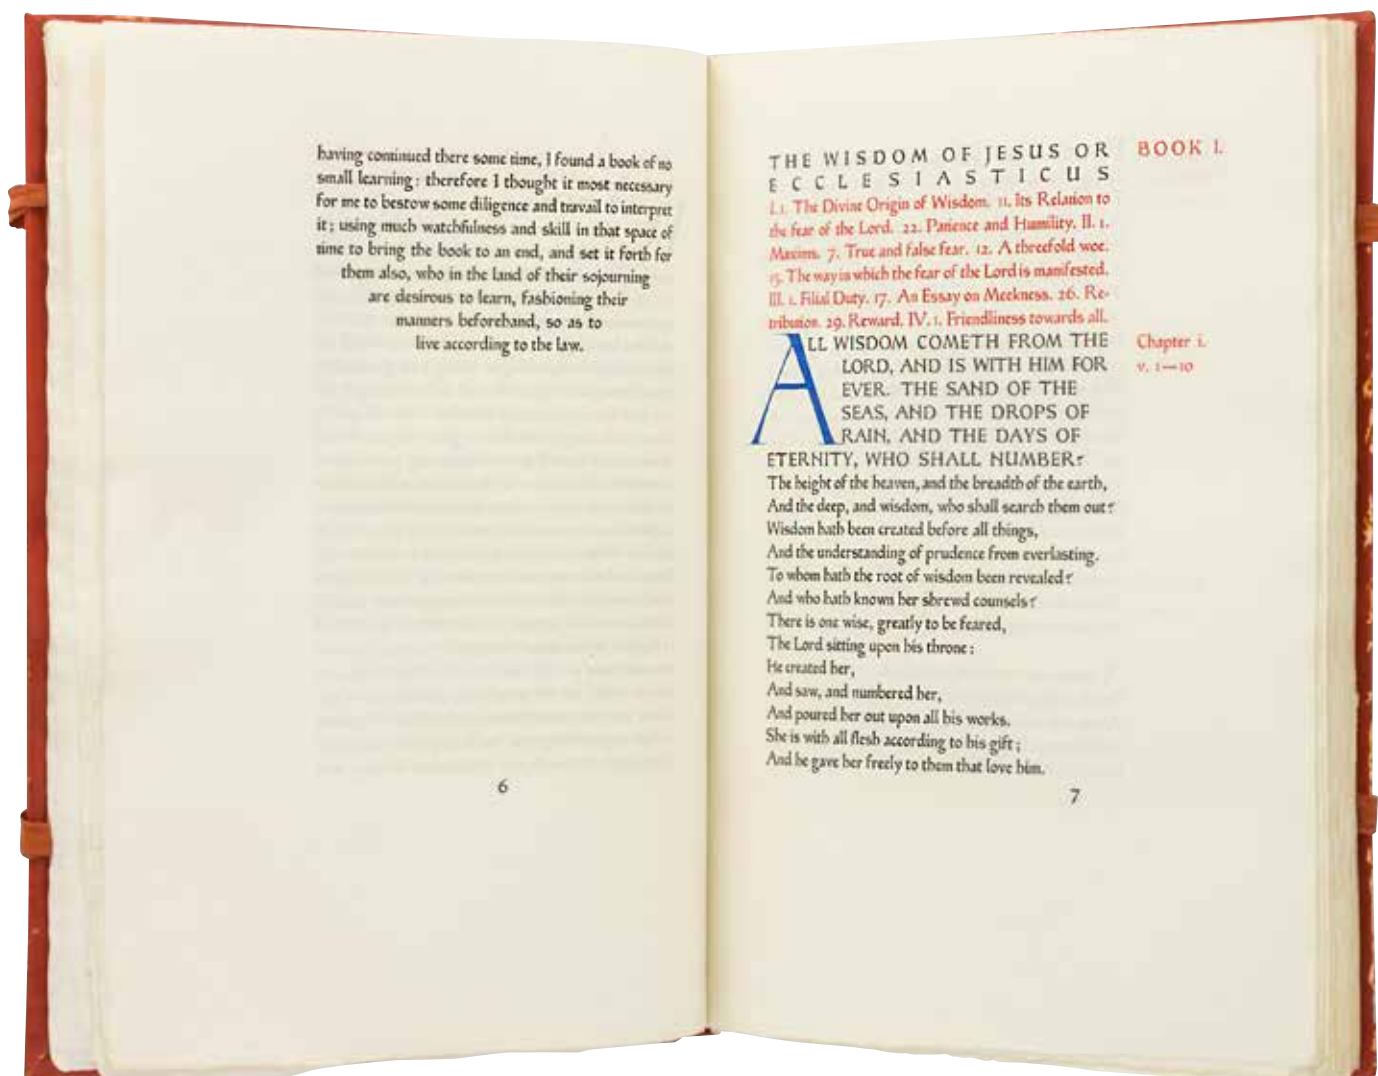 having continued there some time, I found a book of no
small learning: therefore I thought it most necessary
for me to bestow some diligence and travail to interpret
it; using much watchfulness and skill in that space of
time to bring the book to an end, and set it forth for
them also, who in the land of their sojourning
are desirous to learn, fashioning their
manners beforehand, so as to
live according to the law.
6
THE WISDOM OF JESUS OR
ECCLESIASTICUS
BOOK I.
I. 1. The Divine Origin of Wisdom. 11. Its Relation to
the fear of the Lord. 22. Patience and Humility. II. 1.
Maxims. 7. True and false fear. 12. A threefold woe.
15. The way in which the fear of the Lord is manifested.
III. 1. Filial Duty. 17. An Essay on Meekness. 26. Re-
tribution. 29. Reward. IV. 1. Friendliness towards all.
ALL WISDOM COMETH FROM THE
Chapter i.
LORD, AND IS WITH HIM FOR
v. 1—10
EVER. THE SAND OF THE
SEAS, AND THE DROPS OF
RAIN, AND THE DAYS OF
ETERNITY, WHO SHALL NUMBER?
The height of the heaven, and the breadth of the earth,
And the deep, and wisdom, who shall search them out?
Wisdom hath been created before all things,
And the understanding of prudence from everlasting.
To whom hath the root of wisdom been revealed?
And who hath known her shrewd counsels?
There is one wise, greatly to be feared,
The Lord sitting upon his throne:
He created her,
And saw, and numbered her,
And poured her out upon all his works.
She is with all flesh according to his gift;
And he gave her freely to them that love him.
7